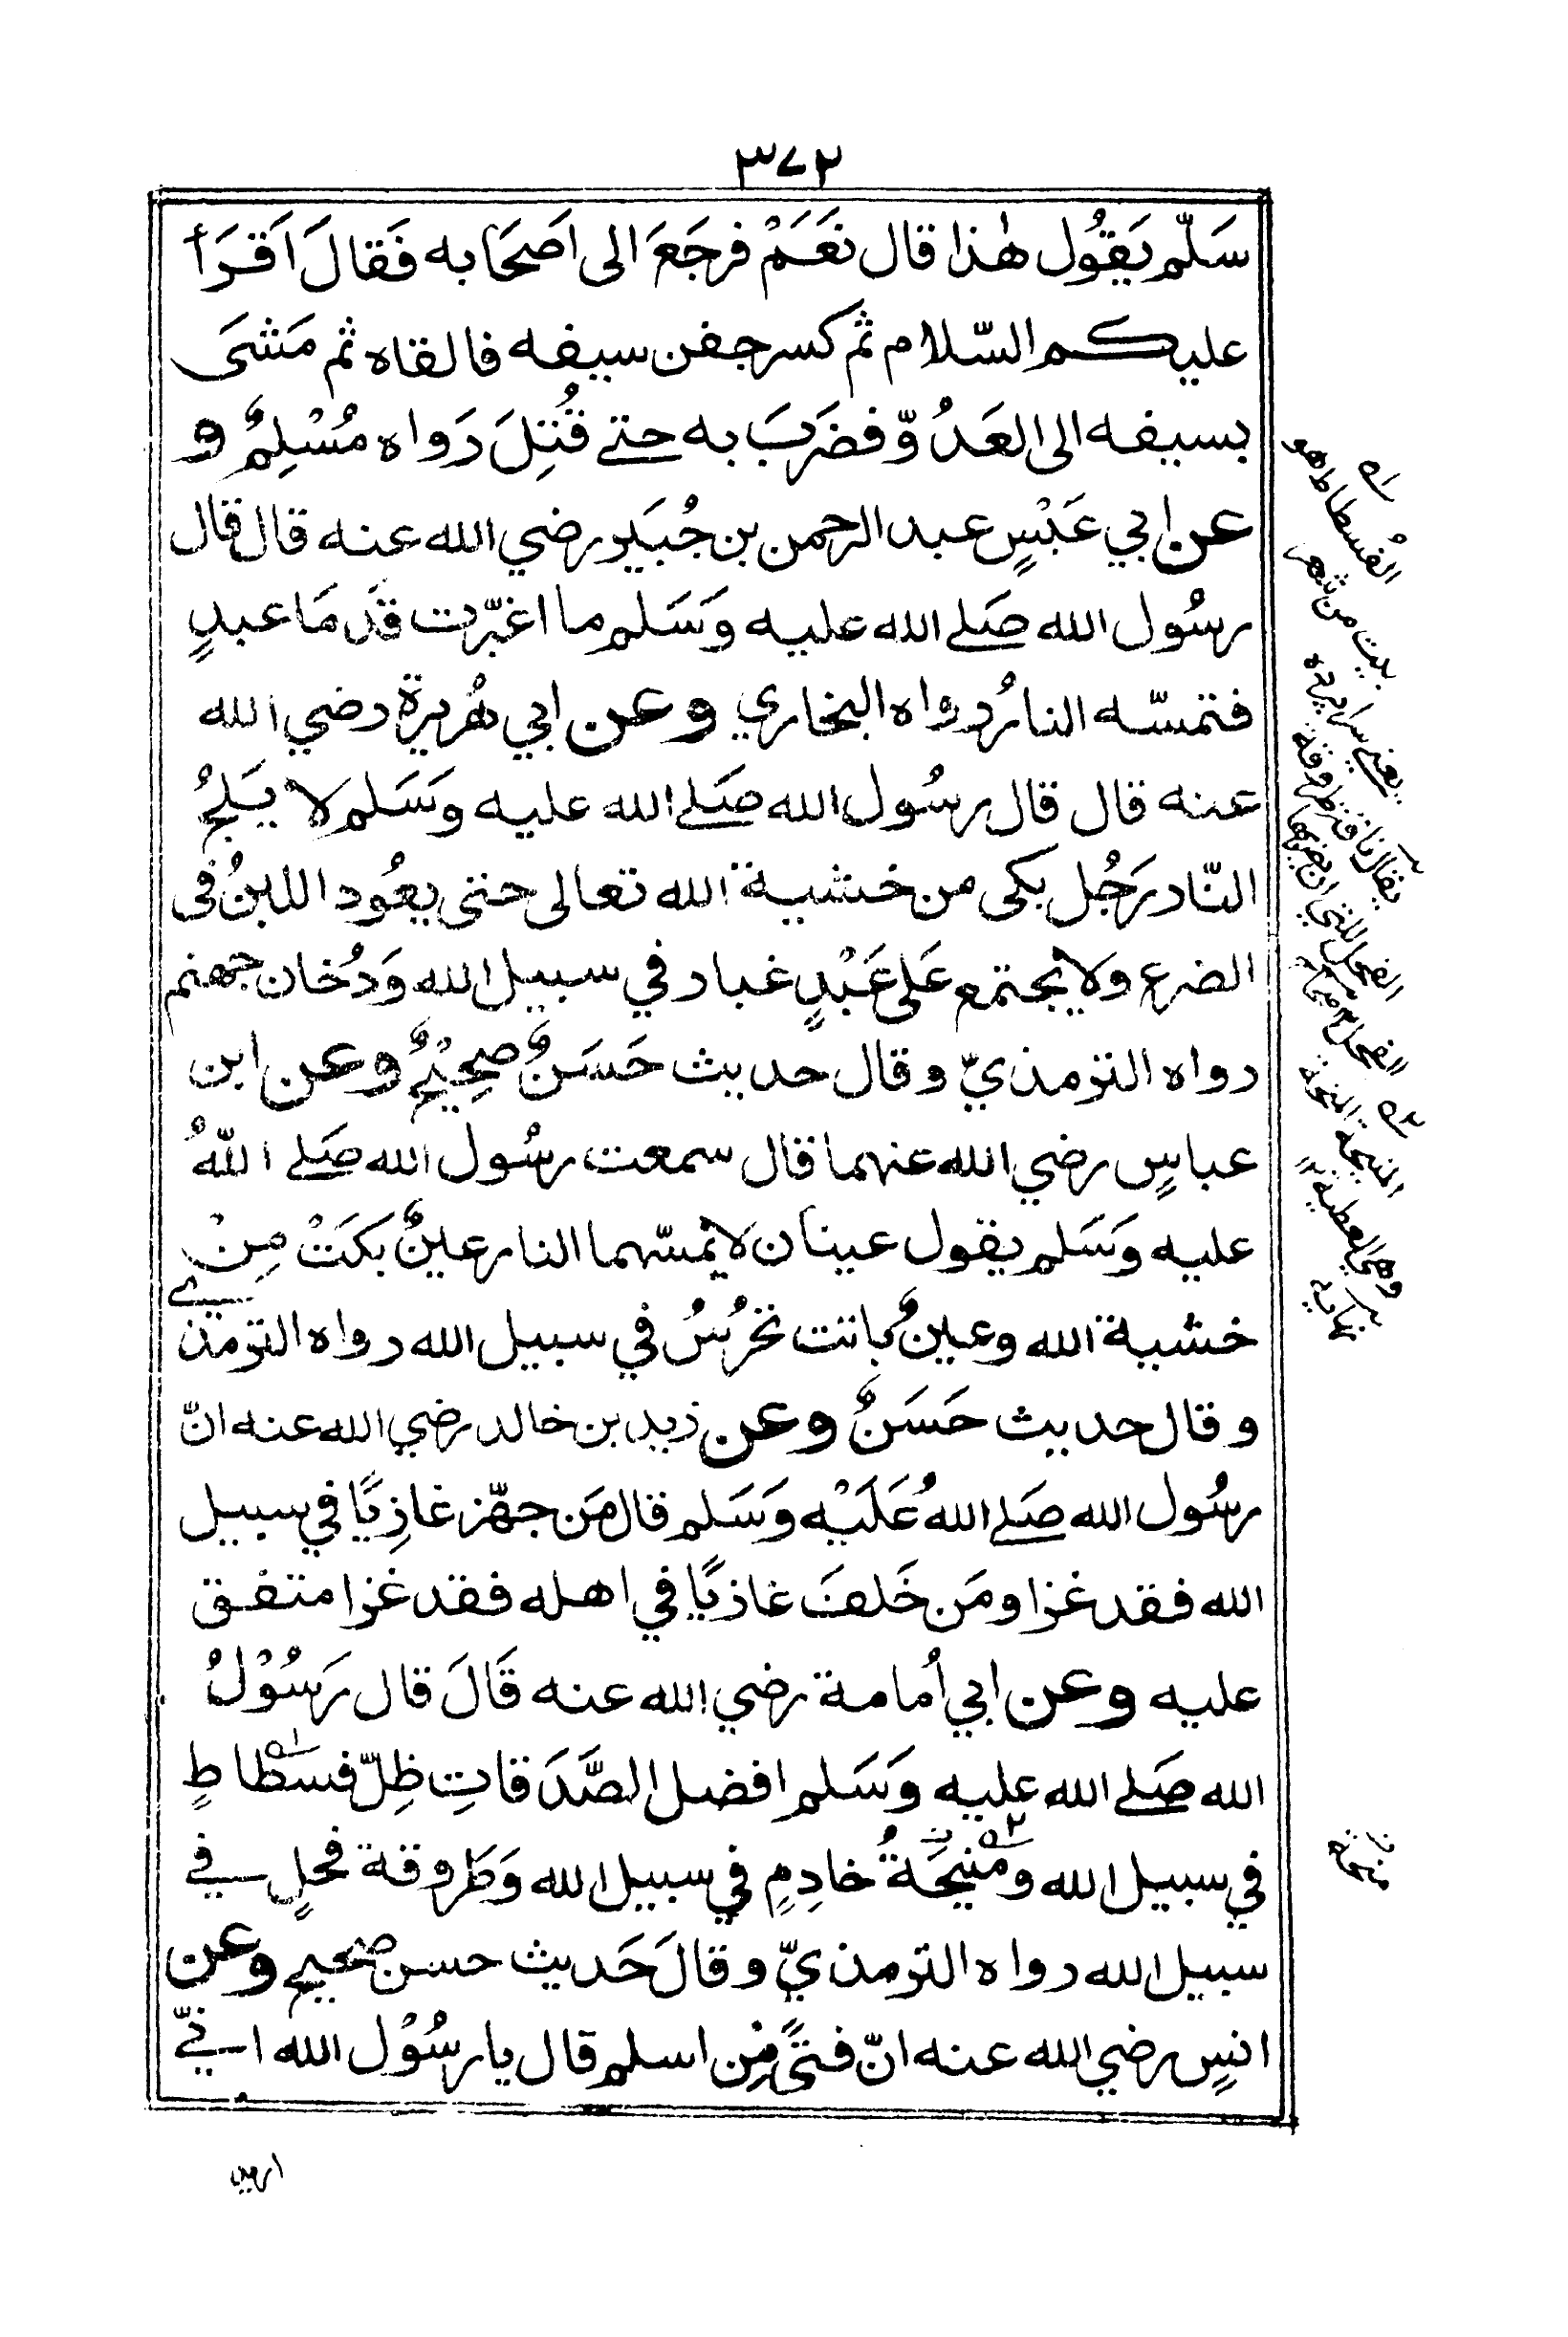 ٣٧٢
سَلّم يَقُول هٰذا قال نَعَمْ فرجَعَ الى اَصحَابه فَقالَ اَقرَأ
عليكم السّلام ثم كسر جفن سيفه فالقاه ثم مَشىَ
بسيفه الى العَدُوّ فضرَبَ به حتے قُتِلَ رَواه مُسْلِمٌ و
عن ابي عَبْسٍ عبد الرحمن بن جُبَير رضي الله عنه قال قال
رسُول الله صَلے الله عليه وَسَلم ما اغبّرت قَدَمَا عبدٍ
فتمسّه النارُ رواه البخاري وعن ابي هُريرة رضي الله
عنه قال قال رسُول الله صَلے الله عليه وَسَلم لا يَلجُ
النّار رَجُل بكى من خشية الله تعالى حتى يعُود اللبنُ فى
الضرع ولا يجتمع عَلى عَبْدٍ غبار في سبيل الله وَدُخان جهنم
رواه الترمذيّ وقال حديث حَسَنٌ صحِيْحٌ وعن ابن
عباسٍ رضي الله عنهما قال سمعت رسُول الله صَلے اللهُ
عليه وَسَلم يقول عينان لا تمسّهما النار عينٌ بكَتْ مِنْ
خشية الله وعينٌ باتت تحْرُسُ في سبيل الله رواه الترمذي
وقال حديث حَسَنٌ وعن زيد بن خالد رضي الله عنه انّ
رسُول الله صَلے اللهُ عَلَيْه وَسَلم قال مَن جهّز غازِيًا في سبيل
الله فقد غزا ومَن خَلفَ غازيًا في اهله فقد غزا متفق
عليه وعن ابي اُمامة رضي الله عنه قَالَ قال رَسُوْلُ
الله صَلے الله عليه وَسَلم افضل الصَّدَقاتِ ظِلّ فسْطاطٍ
في سبيل الله ومَنيحَةُ خادِمٍ في سبيل الله وَطَروقة فحلٍ في
سبيل الله رواه الترمذيّ وقالَ حَديث حسن صحيح وعن
انسٍ رضي الله عنه انّ فتىً مِن اسلم قال يا رسُوْل الله اني
اريد
الفُسطاط هو
بيت من شعر
يقال ناقة طروقة
الفحل للتي ان يضربها
الفحل
المنيحة المنحة
وهي العطية
منحة